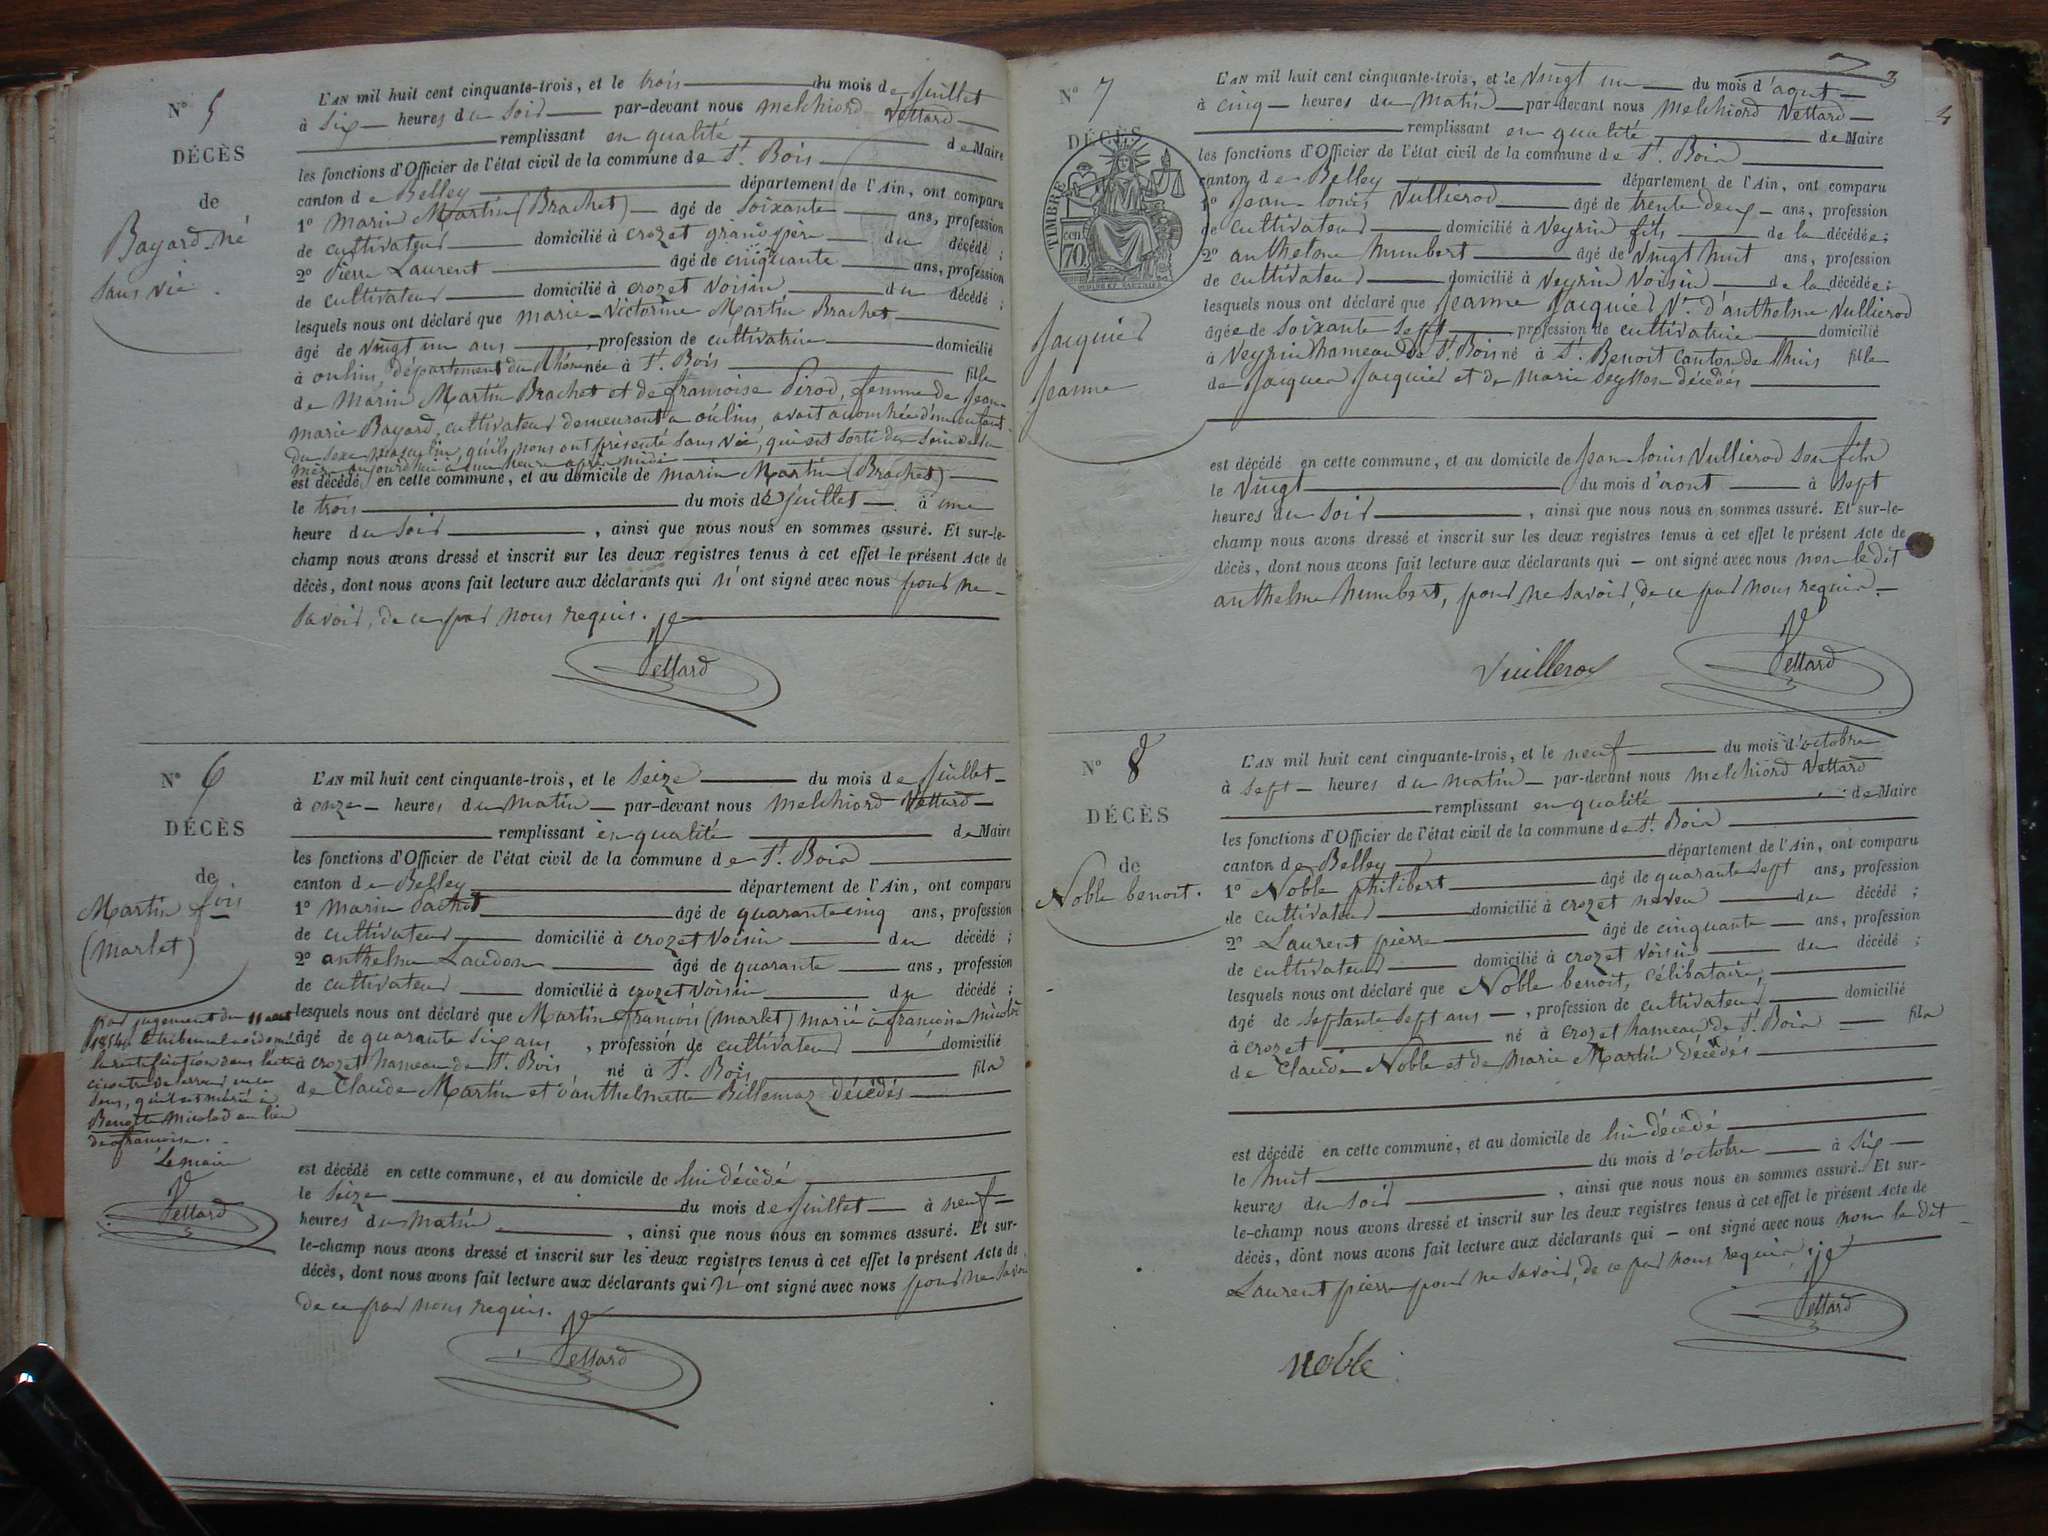 N° 5
DÉCÈS
de
Bayard né
sans vie
L'AN mil huit cent cinquante-trois, et le trois du mois de juillet
à six heures du soir par-devant nous melchiord Vettard
remplissant en qualité de Maire
les fonctions d'Officier de l'état civil de la commune de St. Bois
canton de Belley département de l'Ain, ont comparu
1° Marin Martin (Brachet) âgé de soixante ans, profession
de cultivateur domicilié à crozet grand père du décédé ;
2° Pierre Laurent âgé de cinquante ans, profession
de cultivateur domicilié à crozet voisin du décédé ;
lesquels nous ont déclaré que marie-Victorine Martin Brachet
âgé de vingt un ans, profession de cultivatrice domicilié
à oulins, département du Rhône née à St. Bois fille
de Marin Martin Brachet et de françoise Pirod, femme de jean
marie Bayard, cultivateur demeurant a oulins, avait accouchée d'un enfant
du sexe masculin, qu'ils nous ont présenté sans vie, qui est sorti du sein de sa
mère aujourd'hui à une heure après midi
est décédé en cette commune, et au domicile de marin Martin (Brachet)
le trois du mois de juillet à une
heure du soir, ainsi que nous nous en sommes assuré. Et sur-le-
champ nous avons dressé et inscrit sur les deux registres tenus à cet effet le présent Acte de
décès, dont nous avons fait lecture aux déclarants qui n'ont signé avec nous pour ne
savoir, de ce par nous requis.
Vettard
N° 6
DÉCÈS
de
Martin fois
(Marlet)
par jugement du 11 aout
1854, le tribunal a ordonné
la rectification dans l'acte
ci contre de erreur en ce
sens, qu'il est marié à
Benoite Micolod au lieu
de françoise.
Le maire
Vettard
L'AN mil huit cent cinquante-trois, et le seize du mois de juillet
à onze heures du matin par-devant nous melchiord Vettard
remplissant en qualité de Maire
les fonctions d'Officier de l'état civil de la commune de St. Bois
canton de Belley département de l'Ain, ont comparu
1° Marin Pachot âgé de quarante cinq ans, profession
de cultivateur domicilié à crozet voisin du décédé ;
2° anthelme Laudon âgé de quarante ans, profession
de cultivateur domicilié à crozet voisin du décédé ;
lesquels nous ont déclaré que Martin françois (marlet) marié à françoise
âgé de quarante six ans, profession de cultivateur domicilié
à crozet hameau de St. Bois né à St. Bois fils
de Claude Martin et d'anthelmette Billemaz décédés
est décédé en cette commune, et au domicile de lui décédé
le seize du mois de juillet à neuf
heures du matin, ainsi que nous nous en sommes assuré. Et sur-
le-champ nous avons dressé et inscrit sur les deux registres tenus à cet effet le présent Acte de
décès, dont nous avons fait lecture aux déclarants qui n'ont signé avec nous pour ne savoir
de ce par nous requis.
Vettard
3
4
N° 7
DÉCÈS
TIMBRE
70 cen
Jacquier
Jeanne
L'AN mil huit cent cinquante-trois, et le vingt un du mois d'aout
à cinq heures du matin par-devant nous melchiord Vettard
remplissant en qualité de Maire
les fonctions d'Officier de l'état civil de la commune de St. Bois
canton de Belley département de l'Ain, ont comparu
1° Jean-louis Vullierod âgé de trente deux ans, profession
de cultivateur domicilié à Veyrin fils de la décédée ;
2° anthelme humbert âgé de vingt huit ans, profession
de cultivateur domicilié à Veyrin voisin de la décédée ;
lesquels nous ont déclaré que Jeanne Jacquier Ve. d'anthelme Vullierod
âgée de soixante sept profession de cultivatrice domicilié
à Veyrin hameau de St. Bois né à St. Benoit canton de lhuis fille
de Jacques Jacquier et de marie Seysson décédés
est décédé en cette commune, et au domicile de jean-louis Vullierod son fils
le vingt du mois d'aout à sept
heures du soir, ainsi que nous nous en sommes assuré. Et sur-le-
champ nous avons dressé et inscrit sur les deux registres tenus à cet effet le présent Acte de
décès, dont nous avons fait lecture aux déclarants qui ont signé avec nous non le dit
anthelme humbert, pour ne savoir, de ce par nous requis.
Vuillerod
Vettard
N° 8
DÉCÈS
de
Noble benoit.
L'AN mil huit cent cinquante-trois, et le neuf du mois d'octobre
à sept heures du matin par-devant nous melchiord Vettard
remplissant en qualité de Maire
les fonctions d'Officier de l'état civil de la commune de St. Bois
canton de Belley département de l'Ain, ont comparu
1° Noble philibert âgé de quarante sept ans, profession
de cultivateur domicilié à crozet neveu du décédé ;
2° Laurent pierre âgé de cinquante ans, profession
de cultivateur domicilié à crozet voisin du décédé ;
lesquels nous ont déclaré que Noble benoit, célibataire,
âgé de septante sept ans, profession de cultivateur, domicilié
à crozet né à crozet hameau de St. Bois fils
de Claude Noble et de Marie Martin décédés
est décédé en cette commune, et au domicile de lui décédé
le huit du mois d'octobre à six
heures du soir, ainsi que nous nous en sommes assuré. Et sur-
le-champ nous avons dressé et inscrit sur les deux registres tenus à cet effet le présent Acte de
décès, dont nous avons fait lecture aux déclarants qui ont signé avec nous non le dit
Laurent pierre pour ne savoir, de ce par nous requis,
Vettard
Noble